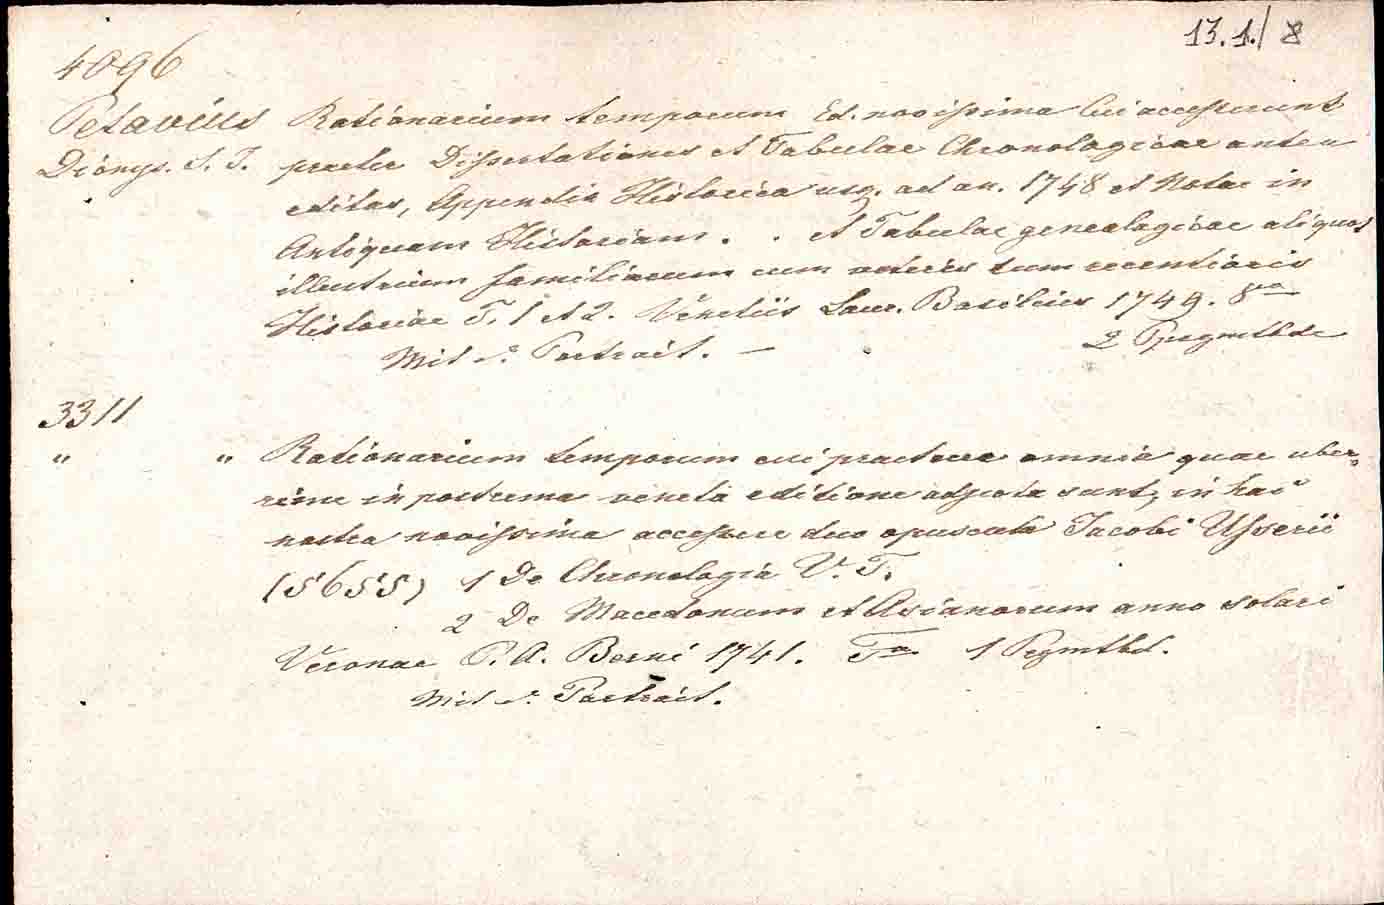 13.1./8
4096
Petavius Rationarium temporum Ed. novissima Cui accesserunt
Dionys. S. J. praeter Dissertationes et Tabulae Chronologicae antea
editas, Appendix Historica usq. ad an. 1748 et Notae in
Antiquam Historiam . . et Tabulae genealogicae aliquot
illustrium familiarum cum veteris tum recentioris
Historiae T. 1 et 2. Venetiis Laur. Basilius 1749. 8vo
Mit s. Portrait. — 2 Ppegmtbde
3311
" " Rationarium temporum cui praeterea omnia quae uber-
rime in postrema veneta editione adjecta sunt, in hac
nostra novissima accessere duo opuscula Jacobi Usserii
(5655) 1 De Chronologia V. T.
2 De Macedonum et Asianorum anno solari
Veronae P. A. Berni 1741. Fo. 1 Pegmtbd.
Mit s. Portrait.